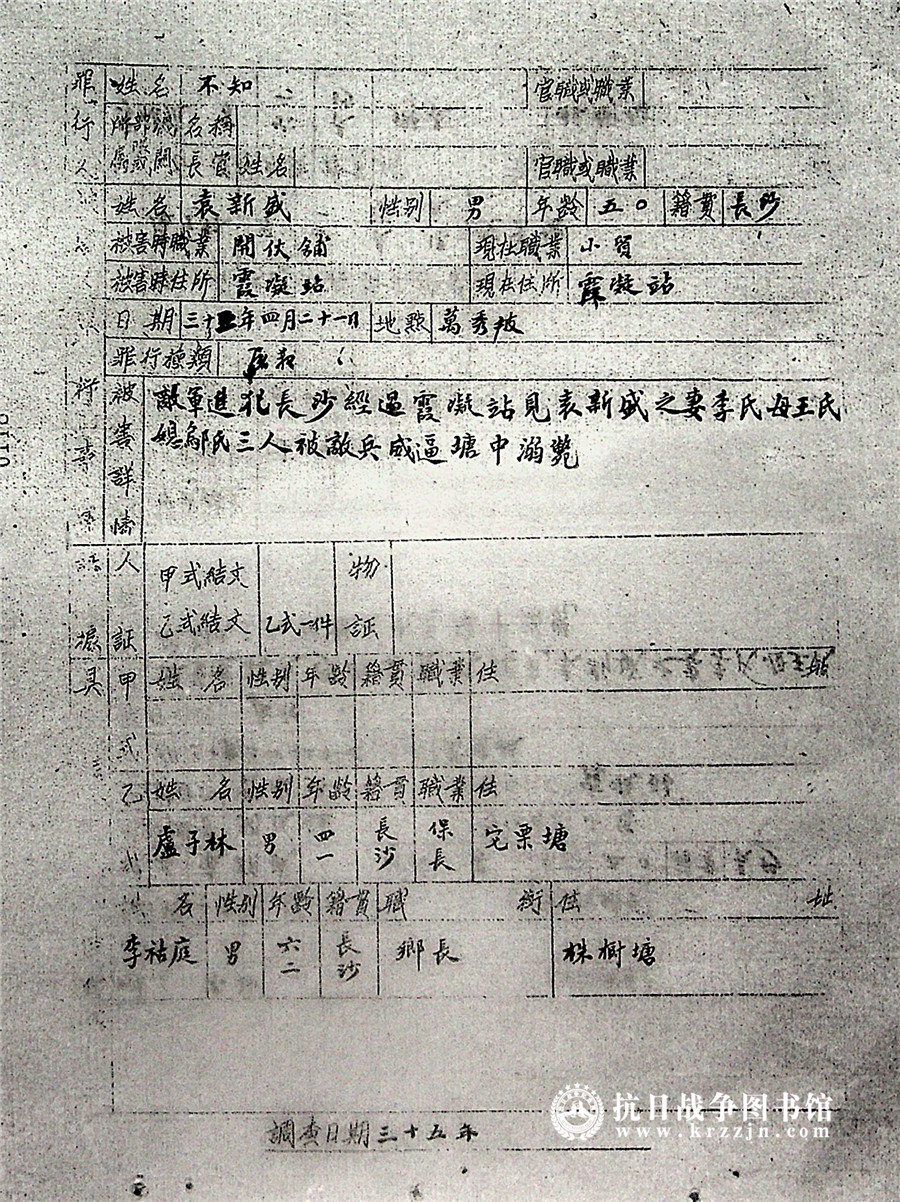 罪行人 姓名 不知 官職或職業
所屬部隊或機關 名稱
長官 姓名 官職或職業
姓名 袁新盛 性别 男 年齡 五〇 籍貫 長沙
被害時職業 開伙舖 現在職業 小貿
被害時住所 霞凝站 現在住所 霞凝站
日期 三十 年四月二十一日 地點 萬秀坡
罪行種類
行事 被害詳情
敵軍進犯長沙經過霞凝站見袁新盛之妻李氏母王氏
媳鄔氏三人被敵兵威逼塘中溺斃
人証 甲式結文 物証
乙式結文 乙式一件
具 甲式 姓名 性别 年齡 籍貫 職業 住
乙 姓名 性别 年齡 籍貫 職業 住
盧子林 男 四一 長沙 保長 宅栗塘
名 性别 年齡 籍貫 職銜 住址
李祜庭 男 六二 長沙 鄉長 株樹塘
調查日期三十五年
抗日战争图书馆
www.krzzjn.com